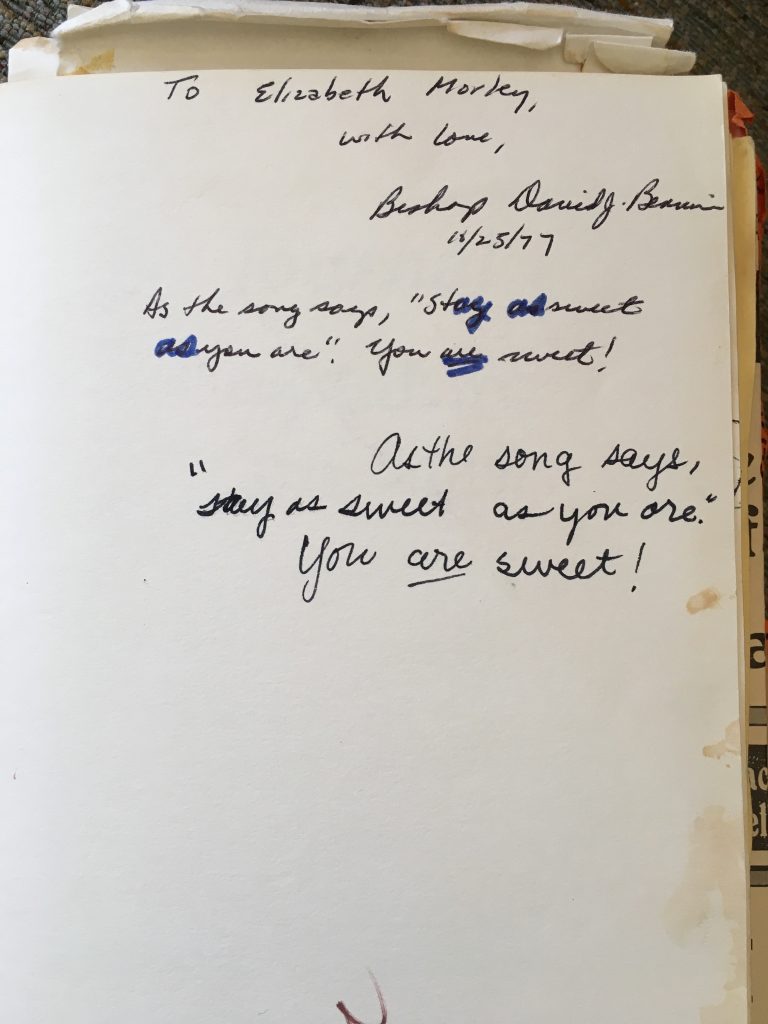 To Elizabeth Morley,
with love,
Bishop David J.
/25/77
As the song says, "Stay as sweet
as you are". You are sweet!
As the song says,
"stay as sweet as you are."
You are sweet!